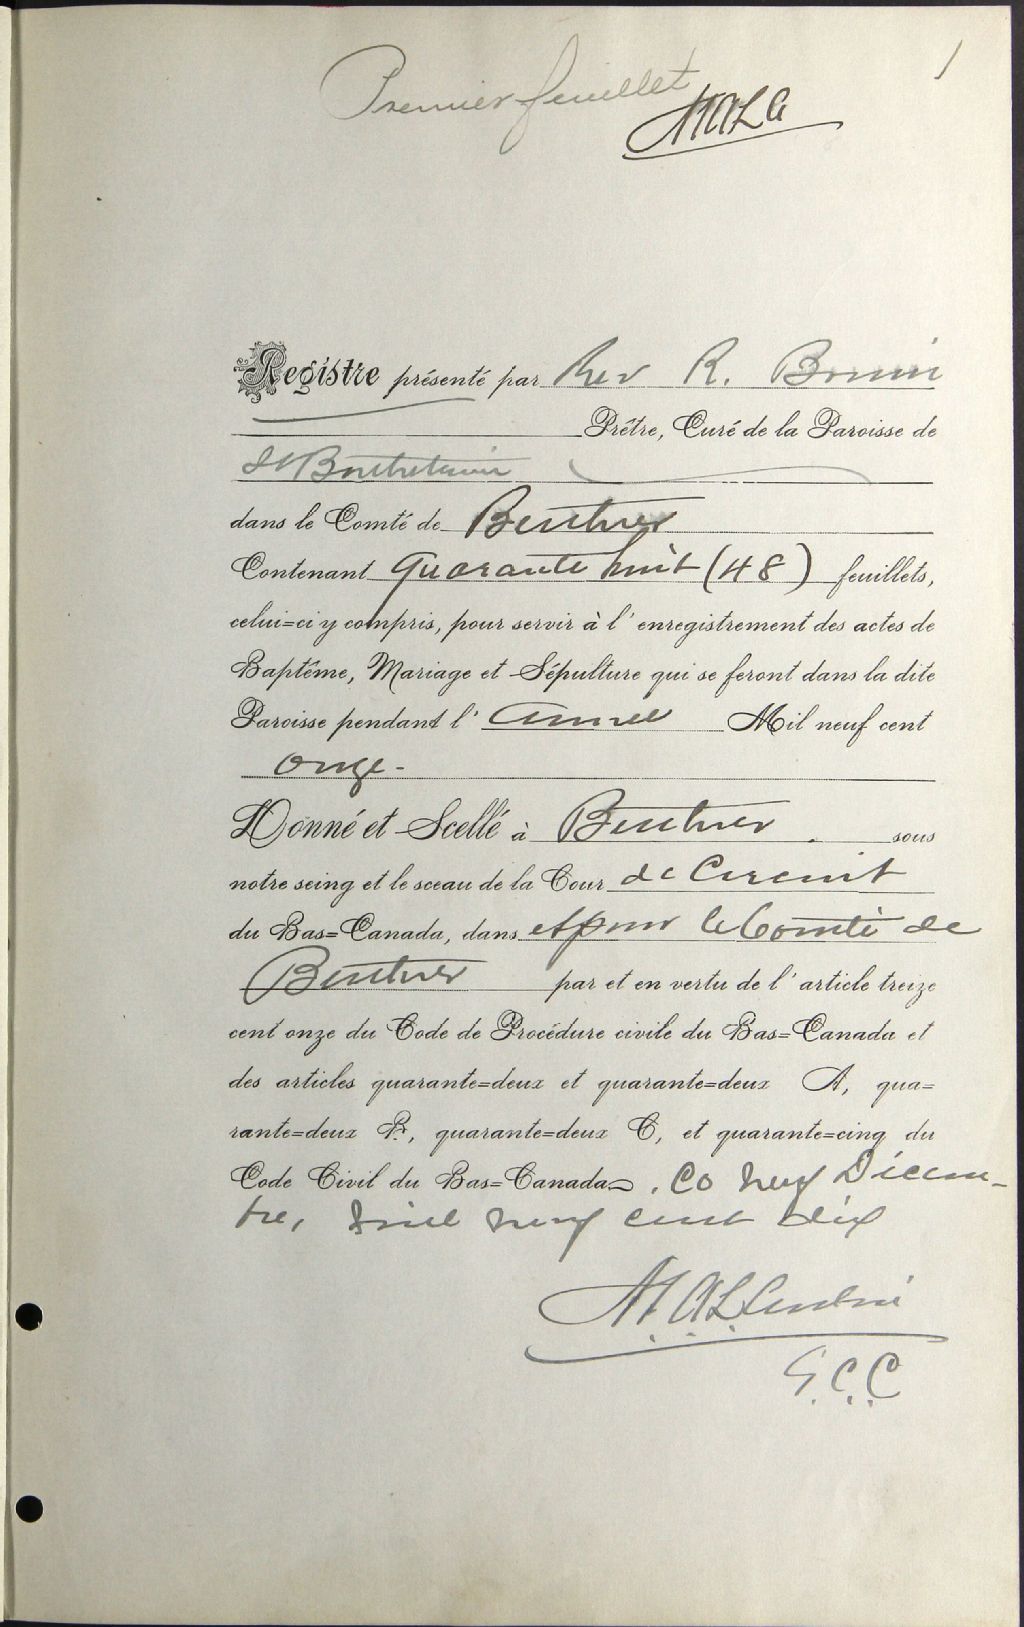 1
Premier feuillet
MALG
Registre présenté par Rev R. Bonin
Prêtre, Curé de la Paroisse de
St Barthelemi
dans le Comté de Berthier
Contenant Quarante huit (48) feuillets,
celui=ci y compris, pour servir à l'enregistrement des actes de
Baptême, Mariage et Sépulture qui se feront dans la dite
Paroisse pendant l'année Mil neuf cent
onze-
Donné et Scellé à Berthier. sous
notre seing et le sceau de la Cour de Circuit
du Bas=Canada, dans et pour le Comté de
Berthier par et en vertu de l'article treize
cent onze du Code de Procédure civile du Bas=Canada et
des articles quarante=deux et quarante=deux A, qua=
rante=deux B, quarante=deux C, et quarante=cinq du
Code Civil du Bas=Canada. Ce neuf Décem-
bre, mil neuf cent dix
G.C.C